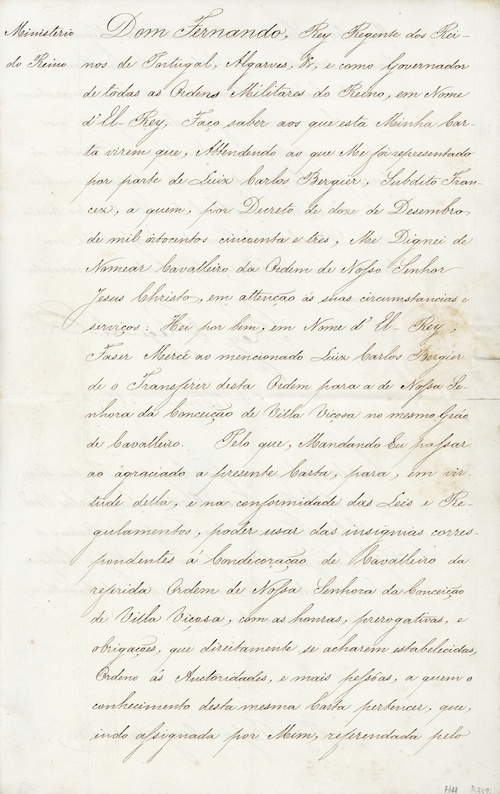 Ministerio
do Reino
Dom Fernando, Rey Regente dos Rei-
nos de Portugal, Algarves, &, e como Governador
de todas as Ordens Militares do Reino, em Nome
d'El-Rey, Faço saber aos que esta Minha Car-
ta virem que, Attendendo ao que Me foi representado
por parte de Luiz Carlos Bergier, Subdito Fran-
cez, a quem, por Decreto de doze de Desembro
de mil oitocentos cincoenta e tres, Me Dignei de
Nomear Cavalleiro da Ordem de Nosso Senhor
Jesus Christo, em attenção ás suas circumstancias e
serviços: Hei por bem, em Nome d'El-Rey,
Faser Mercê ao mencionado Luiz Carlos Bergier
de o Transferir desta Ordem para a de Nossa Se-
nhora da Conceição de Villa Viçosa no mesmo Gráo
de Cavalleiro. Pelo que, Mandando Eu passar
ao agraciado a presente Carta, para, em vir-
tude della, e na conformidade das Leis e Re-
gulamentos, poder usar das insignias corres-
pondentes á Condecoração de Cavalleiro da
referida Ordem de Nossa Senhora da Conceição
de Villa Viçosa, com as honras, prerogativas, e
obrigações, que direitamente se acharem estabelecidas,
Ordeno ás Auctoridades, e mais pessôas, a quem o
conhecimento desta mesma Carta pertencer, que,
indo assignada por Mim, referendada pelo